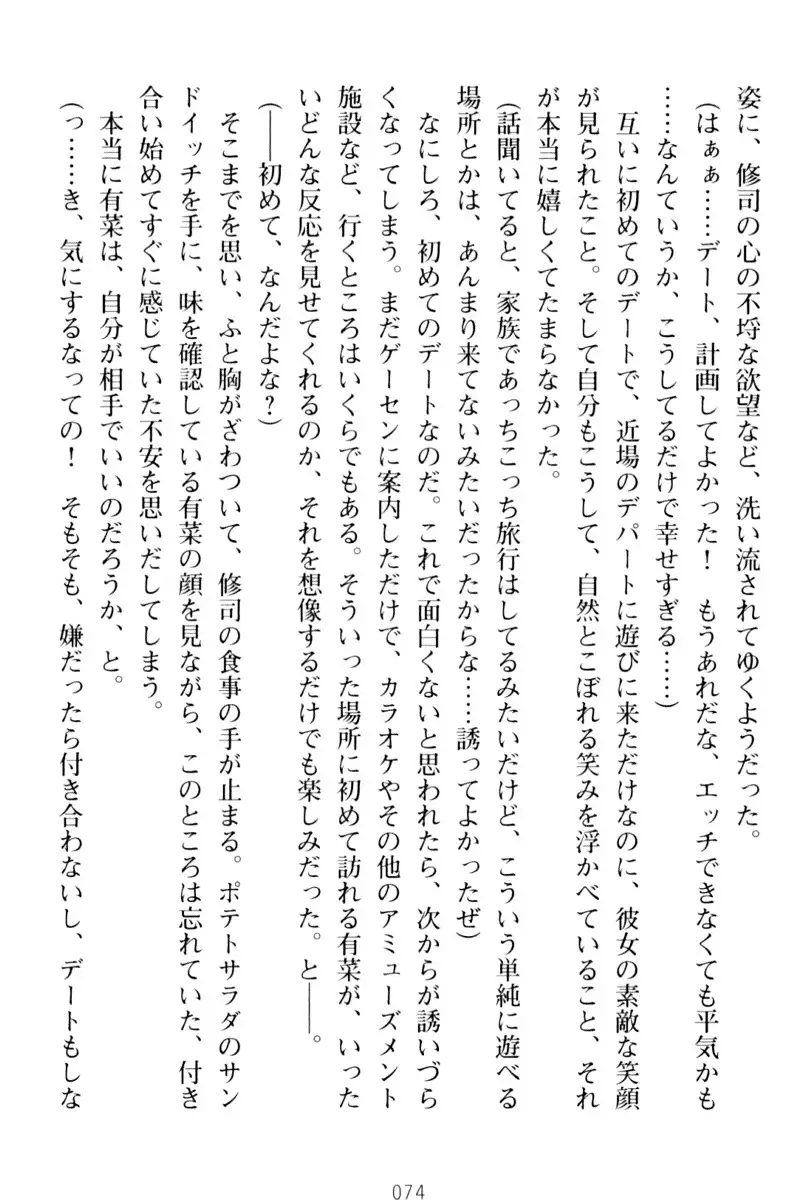 姿に、修司の心の不埒な欲望など、洗い流されてゆくようだった。
（はぁぁ……デート、計画してよかった！　もうあれだな、エッチできなくても平気かも
……なんていうか、こうしてるだけで幸せすぎる……）
　互いに初めてのデートで、近場のデパートに遊びに来ただけなのに、彼女の素敵な笑顔
が見られたこと。そして自分もこうして、自然とこぼれる笑みを浮かべていること、それ
が本当に嬉しくてたまらなかった。
（話聞いてると、家族であっちこっち旅行はしてるみたいだけど、こういう単純に遊べる
場所とかは、あんまり来てないみたいだったからな……誘ってよかったぜ）
　なにしろ、初めてのデートなのだ。これで面白くないと思われたら、次からが誘いづら
くなってしまう。まだゲーセンに案内しただけで、カラオケやその他のアミューズメント
施設など、行くところはいくらでもある。そういった場所に初めて訪れる有菜が、いった
いどんな反応を見せてくれるのか、それを想像するだけでも楽しみだった。と――。
（――初めて、なんだよな？）
　そこまでを思い、ふと胸がざわついて、修司の食事の手が止まる。ポテトサラダのサン
ドイッチを手に、味を確認している有菜の顔を見ながら、このところは忘れていた、付き
合い始めてすぐに感じていた不安を思いだしてしまう。
　本当に有菜は、自分が相手でいいのだろうか、と。
（っ……き、気にするなっての！　そもそも、嫌だったら付き合わないし、デートもしな
074